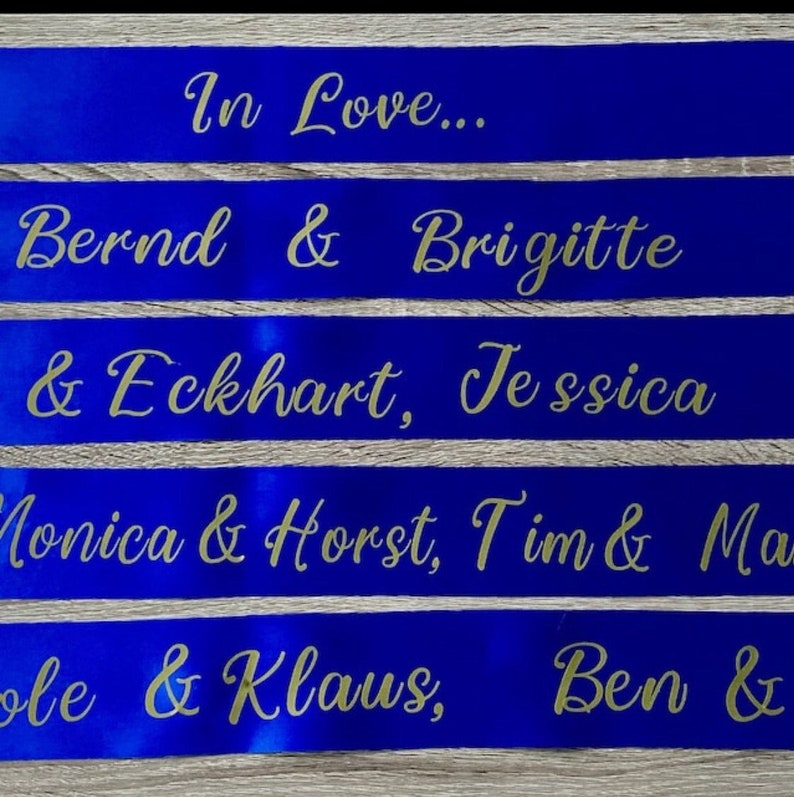 In Love...
Bernd & Brigitte
& Eckhart, Jessica
Monica & Horst, Tim &
& Klaus, Ben &